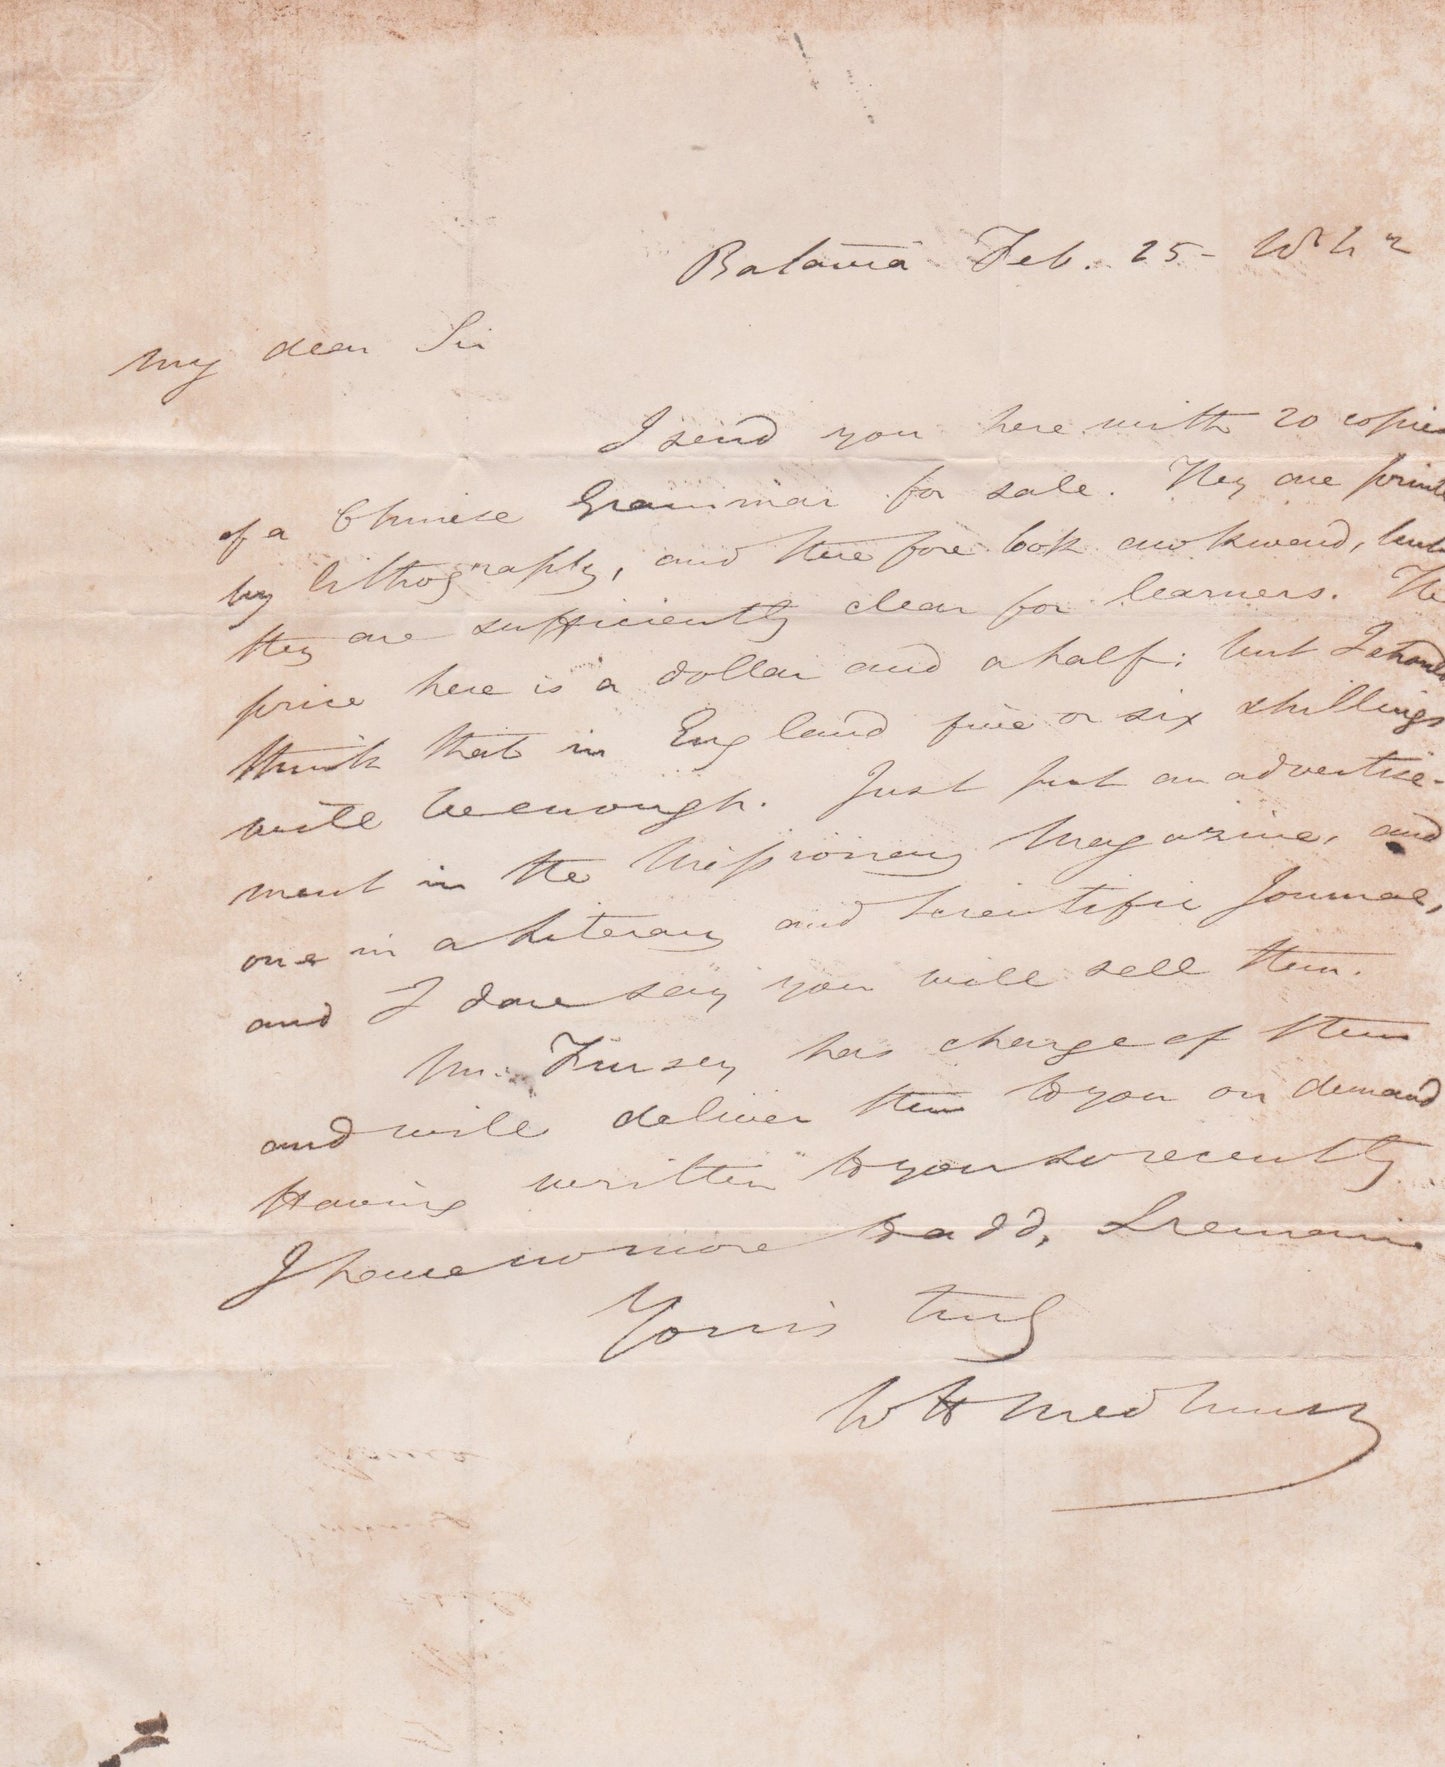 Batavia Feb. 25 - 1842
My dear Sir
I send you here with 20 copies
of a Chinese Grammar for sale. They are printe
by lithography, and there fore look awkward, but
they are sufficiently clear for learners. The
price here is a dollar and a half; but I should
think that in England five or six shillings
will be enough. Just put an advertise-
ment in the Missionary Magazine, and
one in a Literary and Scientific Journal,
and I dare say you will sell them.
Mr. Kinsey has charge of them
and will deliver them to you on demand
Having written to you so recently
I have no more to add, I remain
Yours truly
W H Medhurst